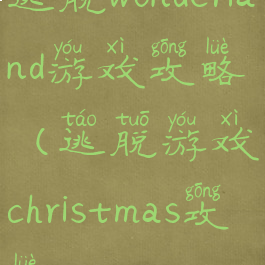 逃脱wonderla
yóu xì gōng lüè
nd游戏攻略
táo tuō yóu xì
（逃脱游戏
gōng
christmas攻
lüè